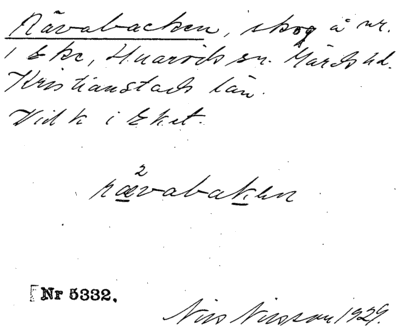 Rävabacken, skog å nr.
1 Eke, Huaröds sn. Gärds hd.
Kristianstads län.
Vid k i Eket.
2
rävabaken
Nr 5332.
Nils Nilsson 1929.